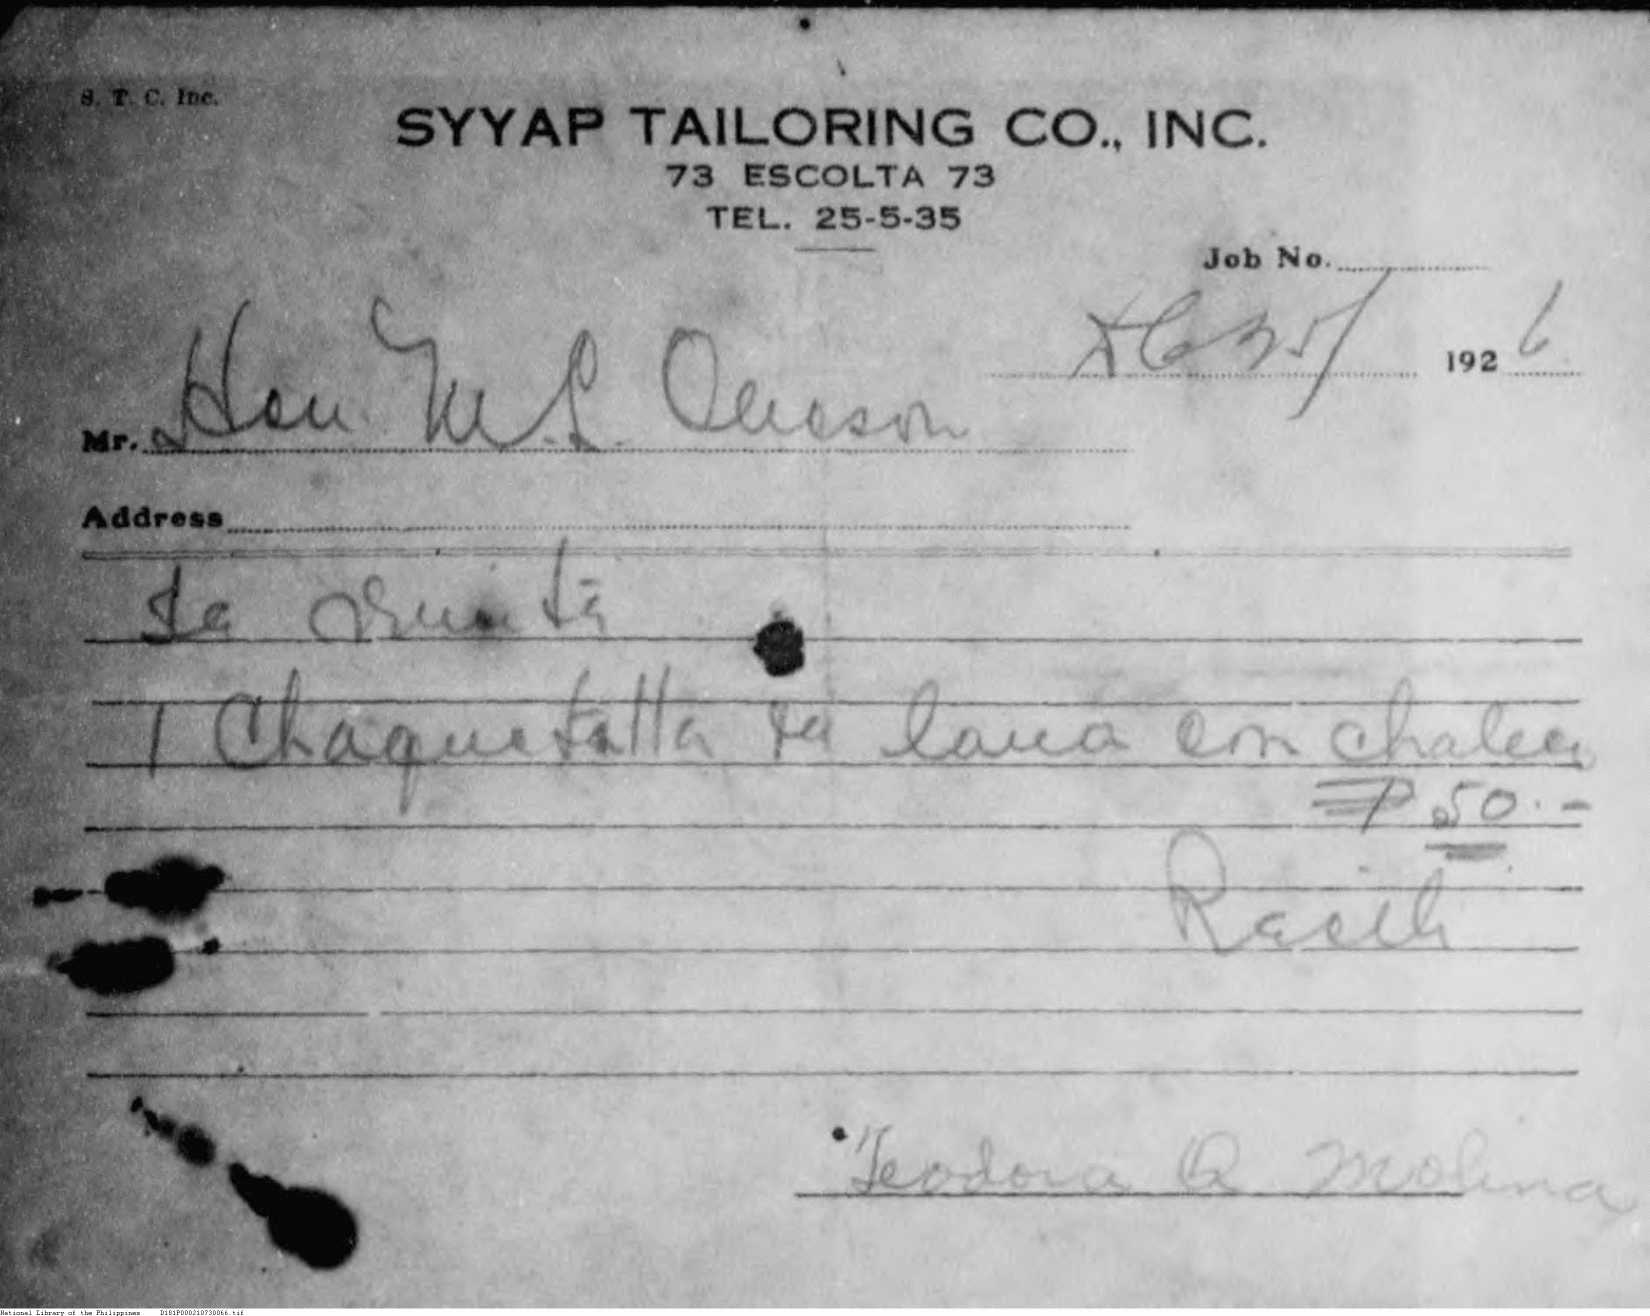 S. T. C. Inc.
SYYAP TAILORING CO., INC.
73 ESCOLTA 73
TEL. 25-5-35
Job No.
25/ 1926
Mr. Hon. M. L. Queson
Address
1 Chaquetilla de lana con chaleco
₱ 50.-
Teodora Q Molina
National Library of the Philippines D181P000210730066.tif